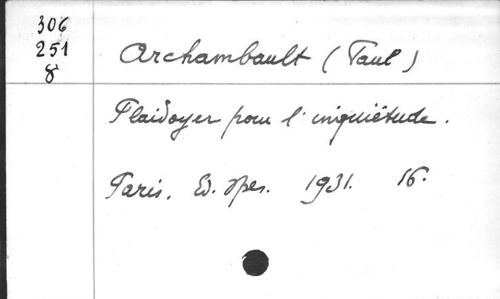 306
251
8
Archambault (Paul)
Plaidoyer pour l'inquiétude.
Paris. Ed. Spes. 1931. 16.